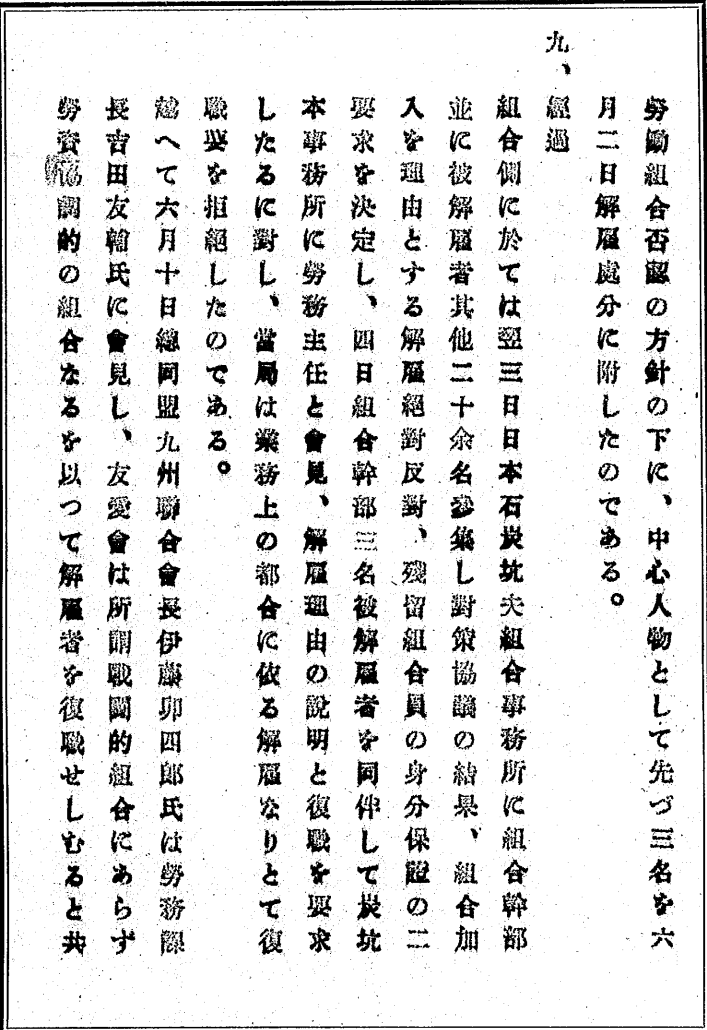 勞働組合否認の方針の下に、中心人物として先づ三名を六
月二日解雇處分に附したのである。
九、經過
組合側に於ては翌三日日本石炭坑夫組合事務所に組合幹部
並に被解雇者其他二十余名參集し對策協議の結果、組合加
入を理由とする解雇絕對反對、殘留組合員の身分保證の二
要求を決定し、四日組合幹部三名被解雇者を同伴して炭坑
本事務所に勞務主任と會見、解雇理由の說明と復職を要求
したるに對し、當局は業務上の都合に依る解雇なりとて復
職要を拒絕したのである。
越へて六月十日總同盟九州聯合會長伊藤卯四郎氏は勞務課
長吉田友輪氏に會見し、友愛會は所謂戰鬪的組合にあらず
勞資協調的の組合なるを以つて解雇者を復職せしむると共